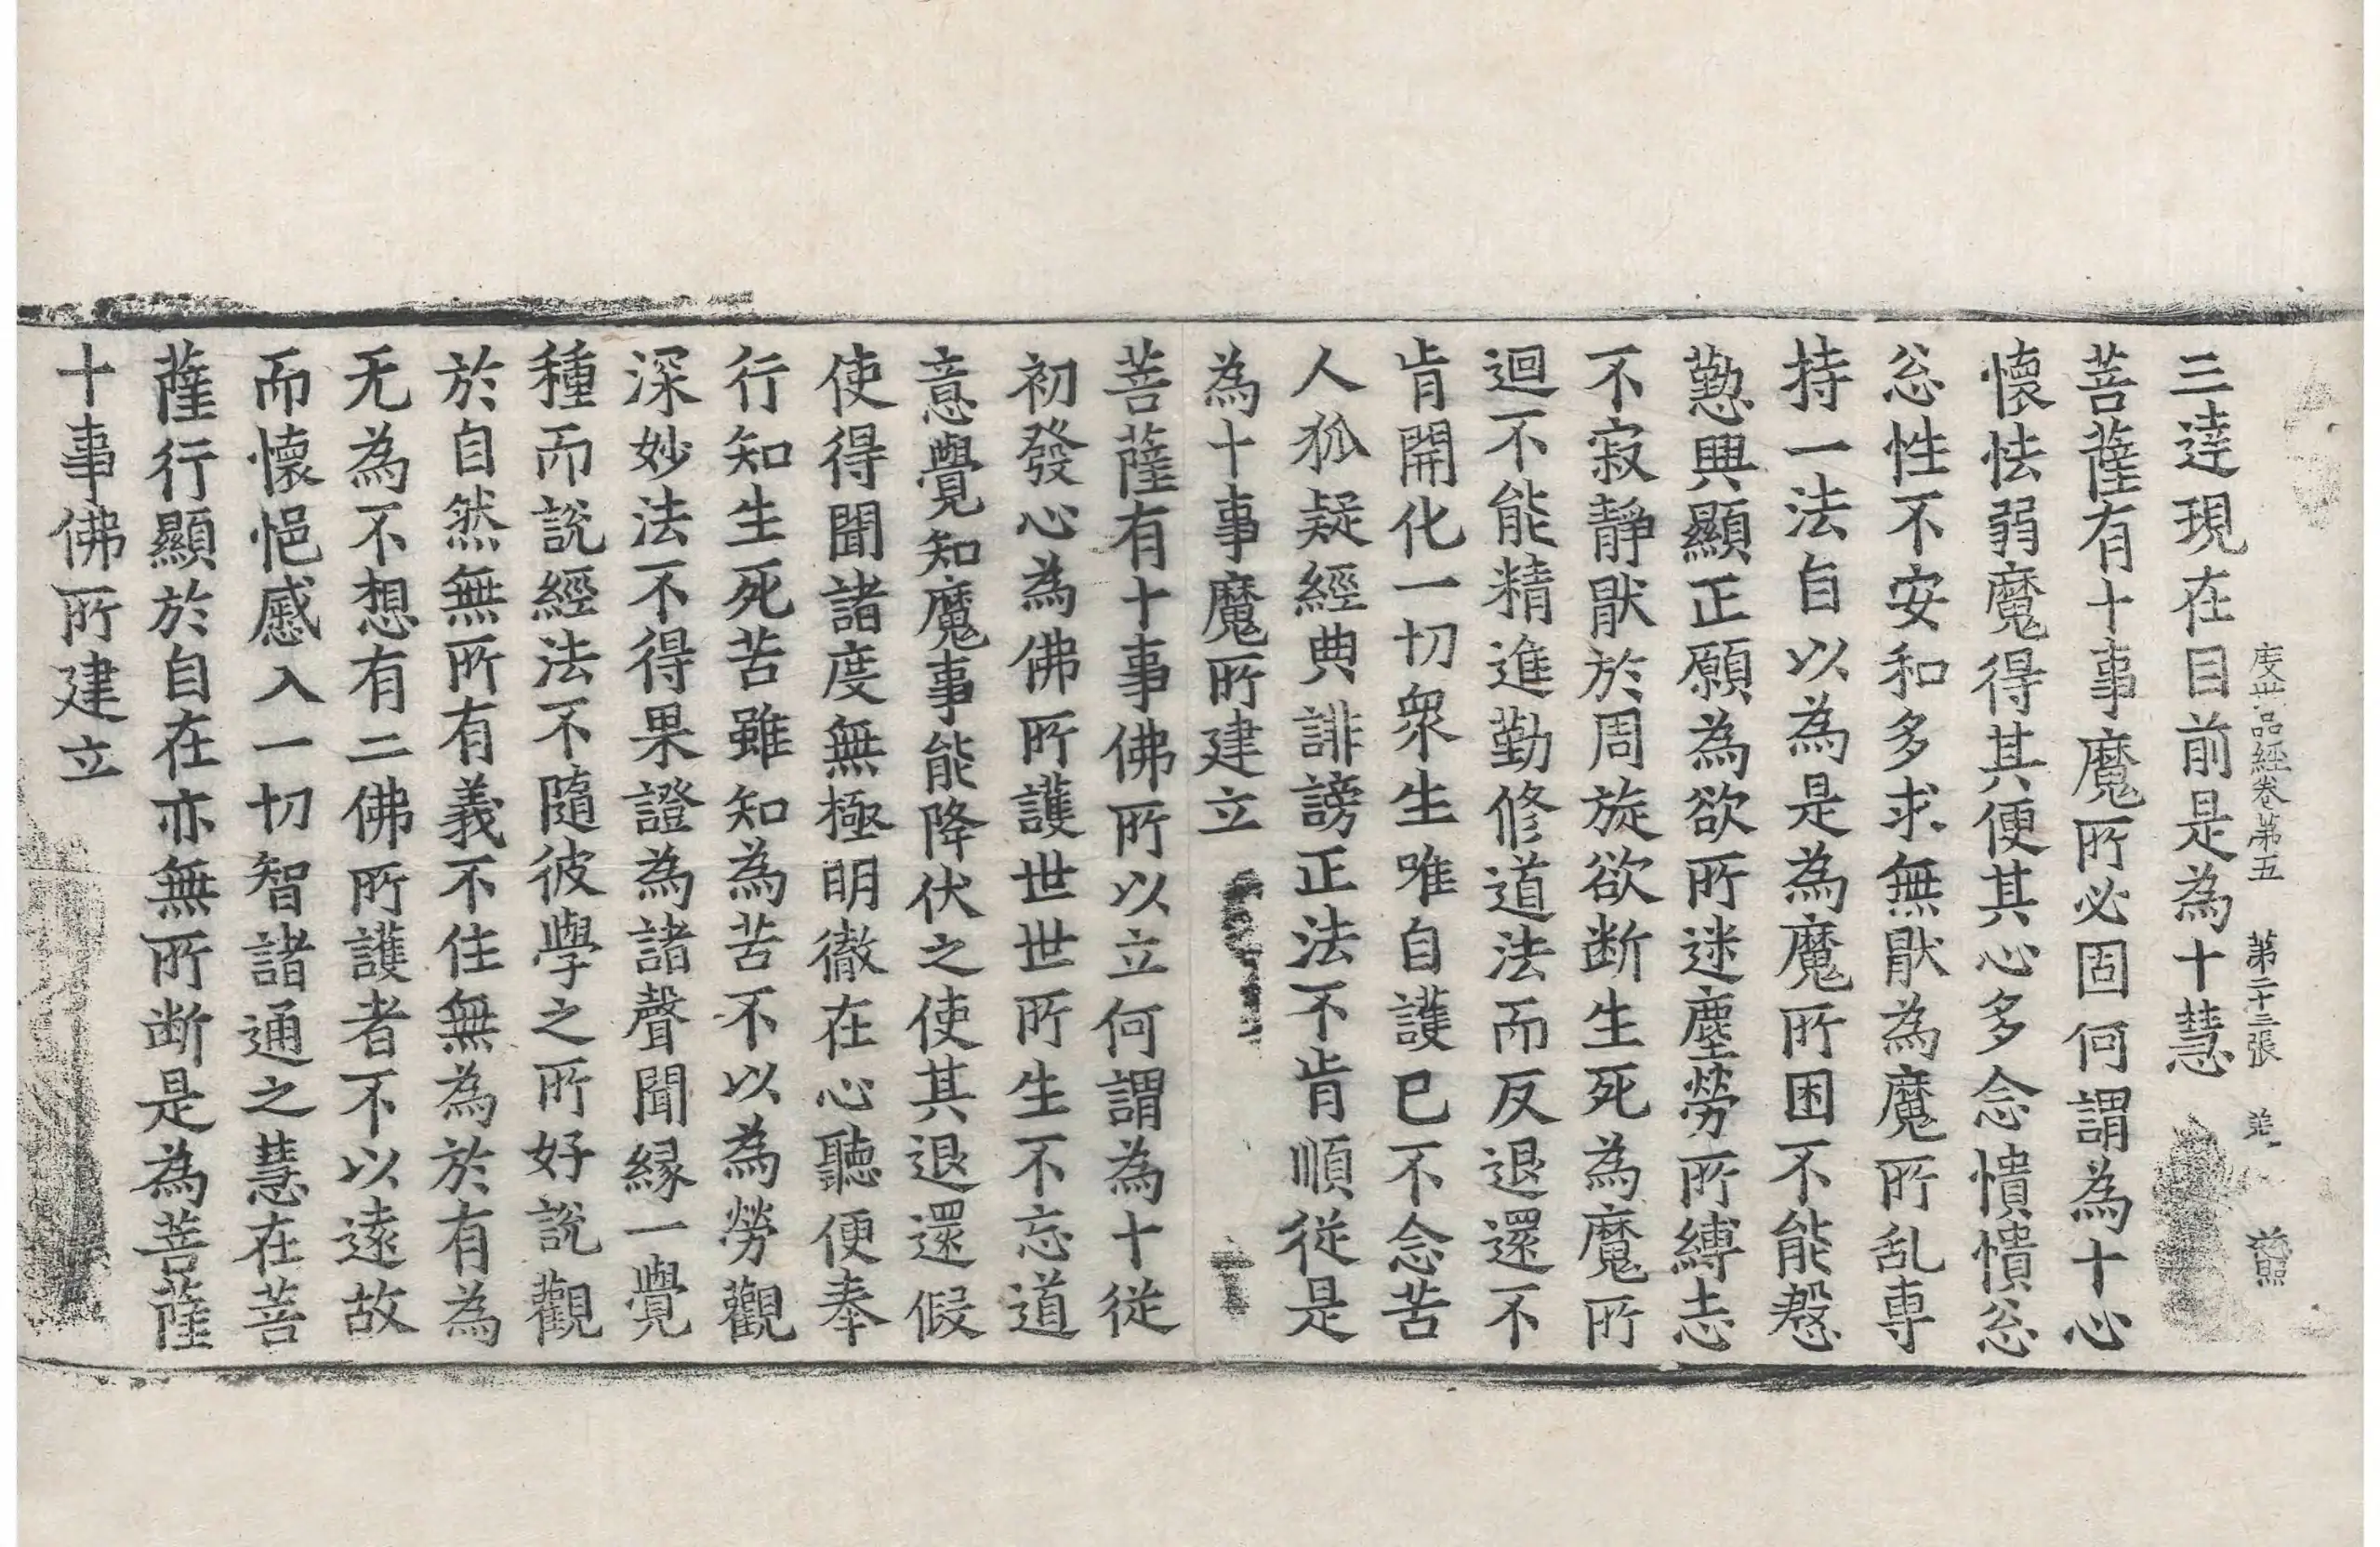 度世品經卷第五　第二十三張
三達現在目前是為十慧
菩薩有十事魔所必固何謂為十心
懷怯弱魔得其便其心多念憒憒忿
忿性不安和多求無猒為魔所乱専
持一法自以為是為魔所困不能慇
懃興顯正願為欲所迷塵勞所縛志
不寂靜猒於周旋欲断生死為魔所
迴不能精進勤修道法而反退還不
肯開化一切衆生唯自護已不念苦
人狐疑經典誹謗正法不肯順從是
為十事魔所建立
菩薩有十事佛所以立何謂為十從
初發心為佛所護世世所生不忘道
意覺知魔事能降伏之使其退還假
使得聞諸度無極明徹在心聽便奉
行知生死苦雖知為苦不以為勞觀
深妙法不得果證為諸聲聞縁一覺
種而説經法不隨彼學之所好説觀
於自然無所有義不住無為於有為
无為不想有二佛所護者不以遠故
而懷悒慼入一切智諸通之慧在菩
薩行顯於自在亦無所断是為菩薩
十事佛所建立